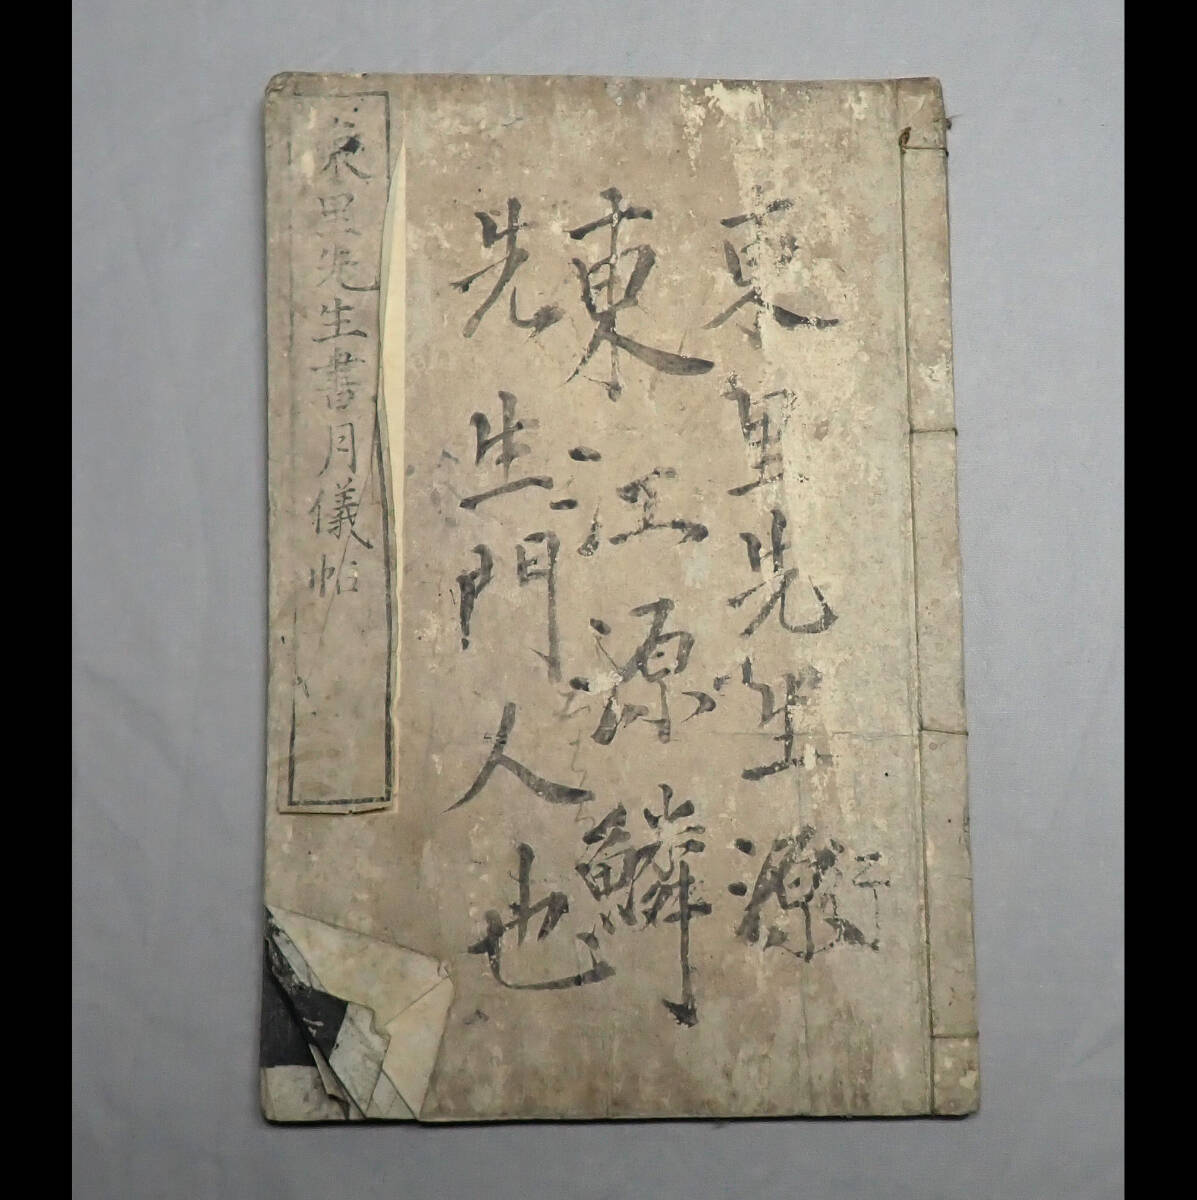 東里先生源
東江源鱗
先生門人也
東里先生書月儀帖